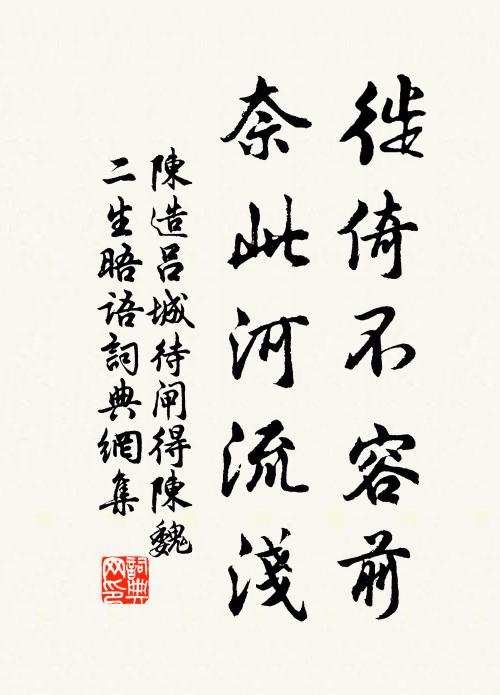 徙倚不容前
奈此河流淺
陳造呂城待闸得陳魏
二生晤语詞典網集
詞典
网印